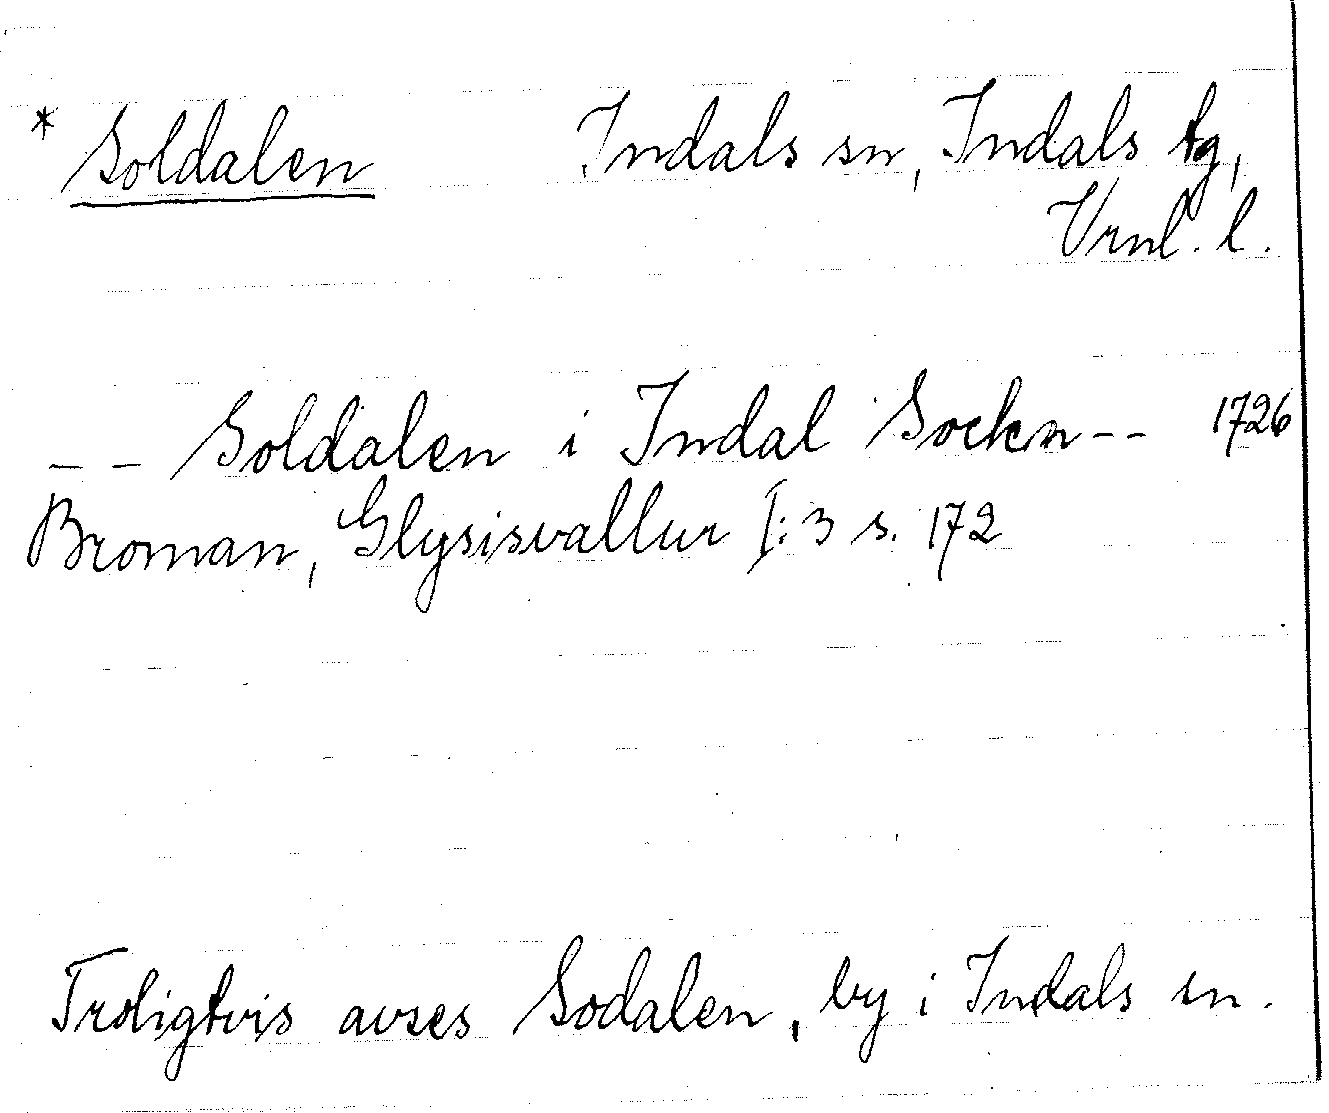 * Soldalen Indals sn, Indals tg,
Vrnl. l.
-- Soldalen i Indal Sockn -- 1726
Broman, Glysisvallur I:3 s. 172
Troligtvis avses Sodalen, by i Indals sn.